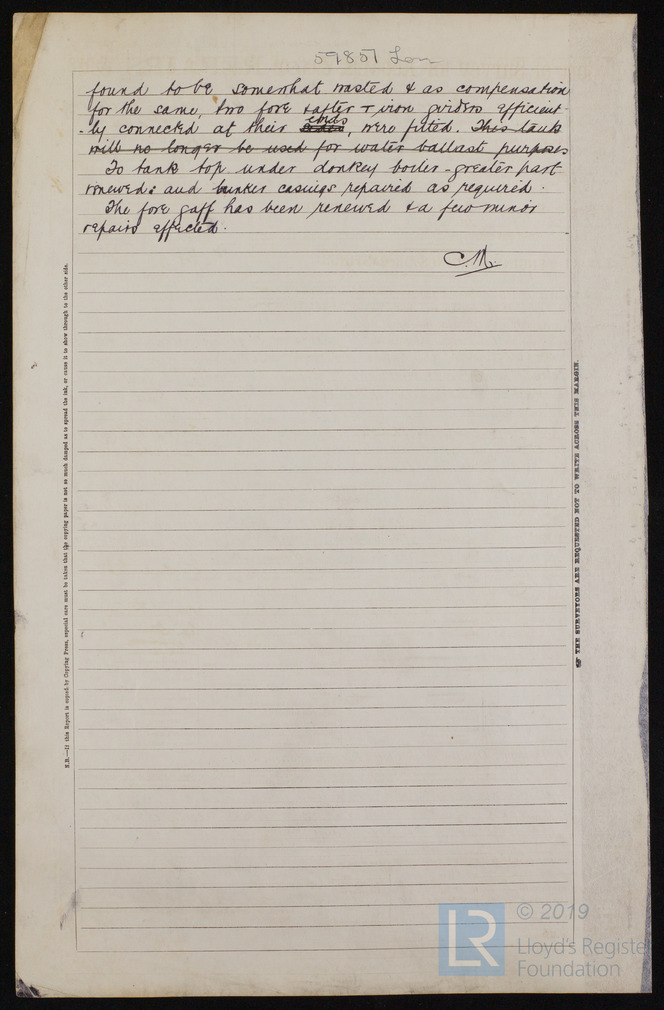 59857 Lon
found to be somewhat wasted & as compensation
for the same, two fore & after T iron girders efficient-
-ly connected at their ends, were fitted. This tank
will no longer be used for water ballast purposes
To tank top under donkey boiler - greater part
renewed & and bunker casings repaired as required.
The fore gaff has been renewed & a few minor
repairs effected.
C.M.
N.B.—If this Report is copied by Copying Press, especial care must be taken that the copying paper is not so much damped as to spread the ink, or cause it to show through to the other side.
☞ THE SURVEYORS ARE REQUESTED NOT TO WRITE ACROSS THIS MARGIN.
LR
© 2019
Lloyd's Register
Foundation